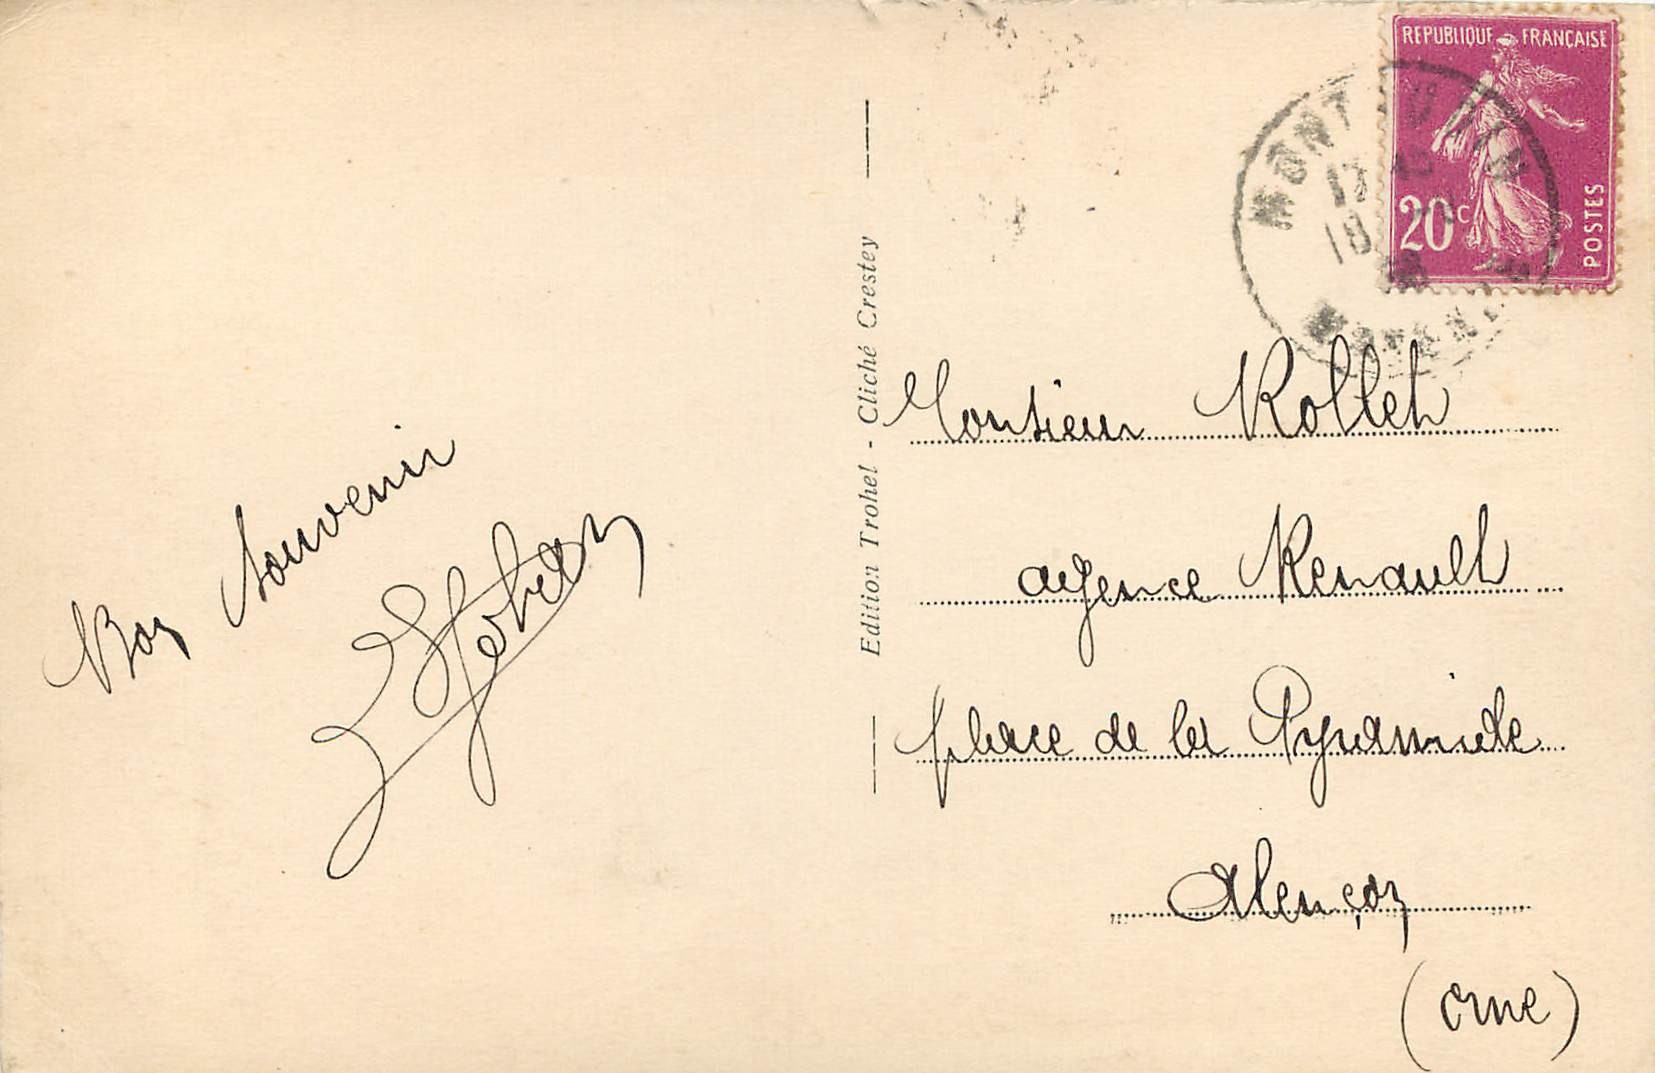 REPUBLIQUE FRANÇAISE
20c
POSTES
17
18
Edition Trohel - Cliché Crestey
Bon Souvenir
Monsieur Rollet
agence Renault
place de la Pyramide
Alençon
(Orne)